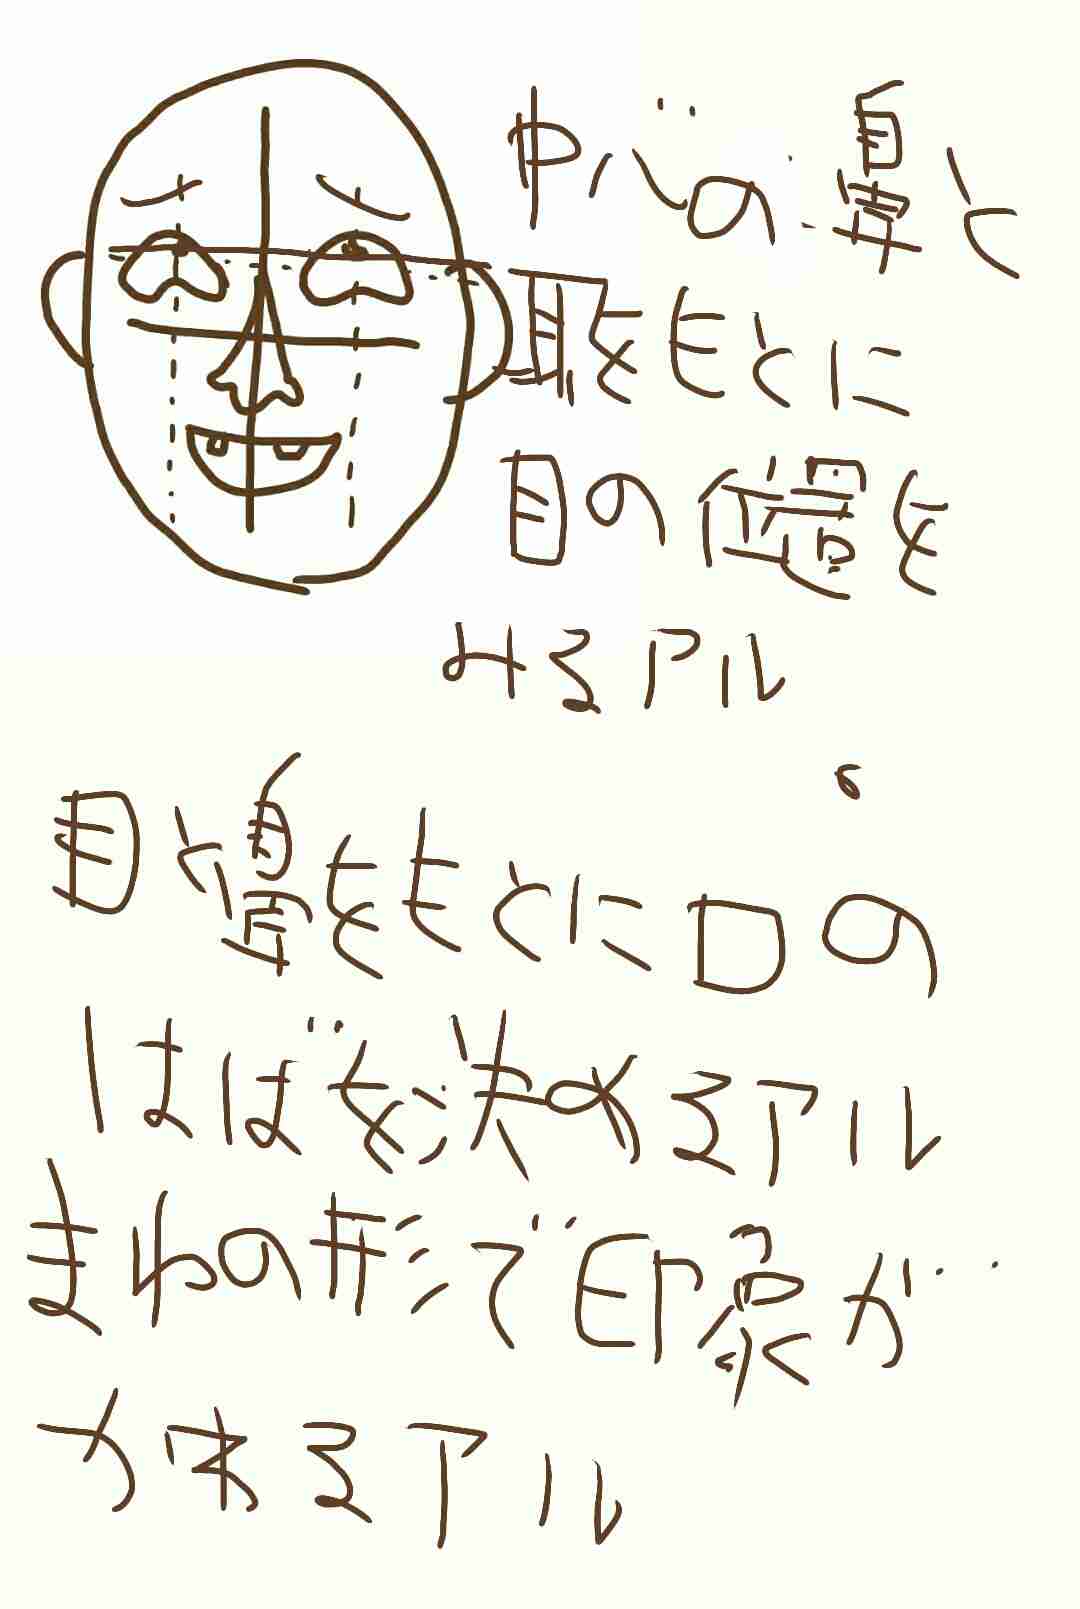 中心の鼻と
耳をもとに
目の位置を
みるアル
目と鼻をもとに口の
はばを決めるアル
まわの形で印象が
かわるアル